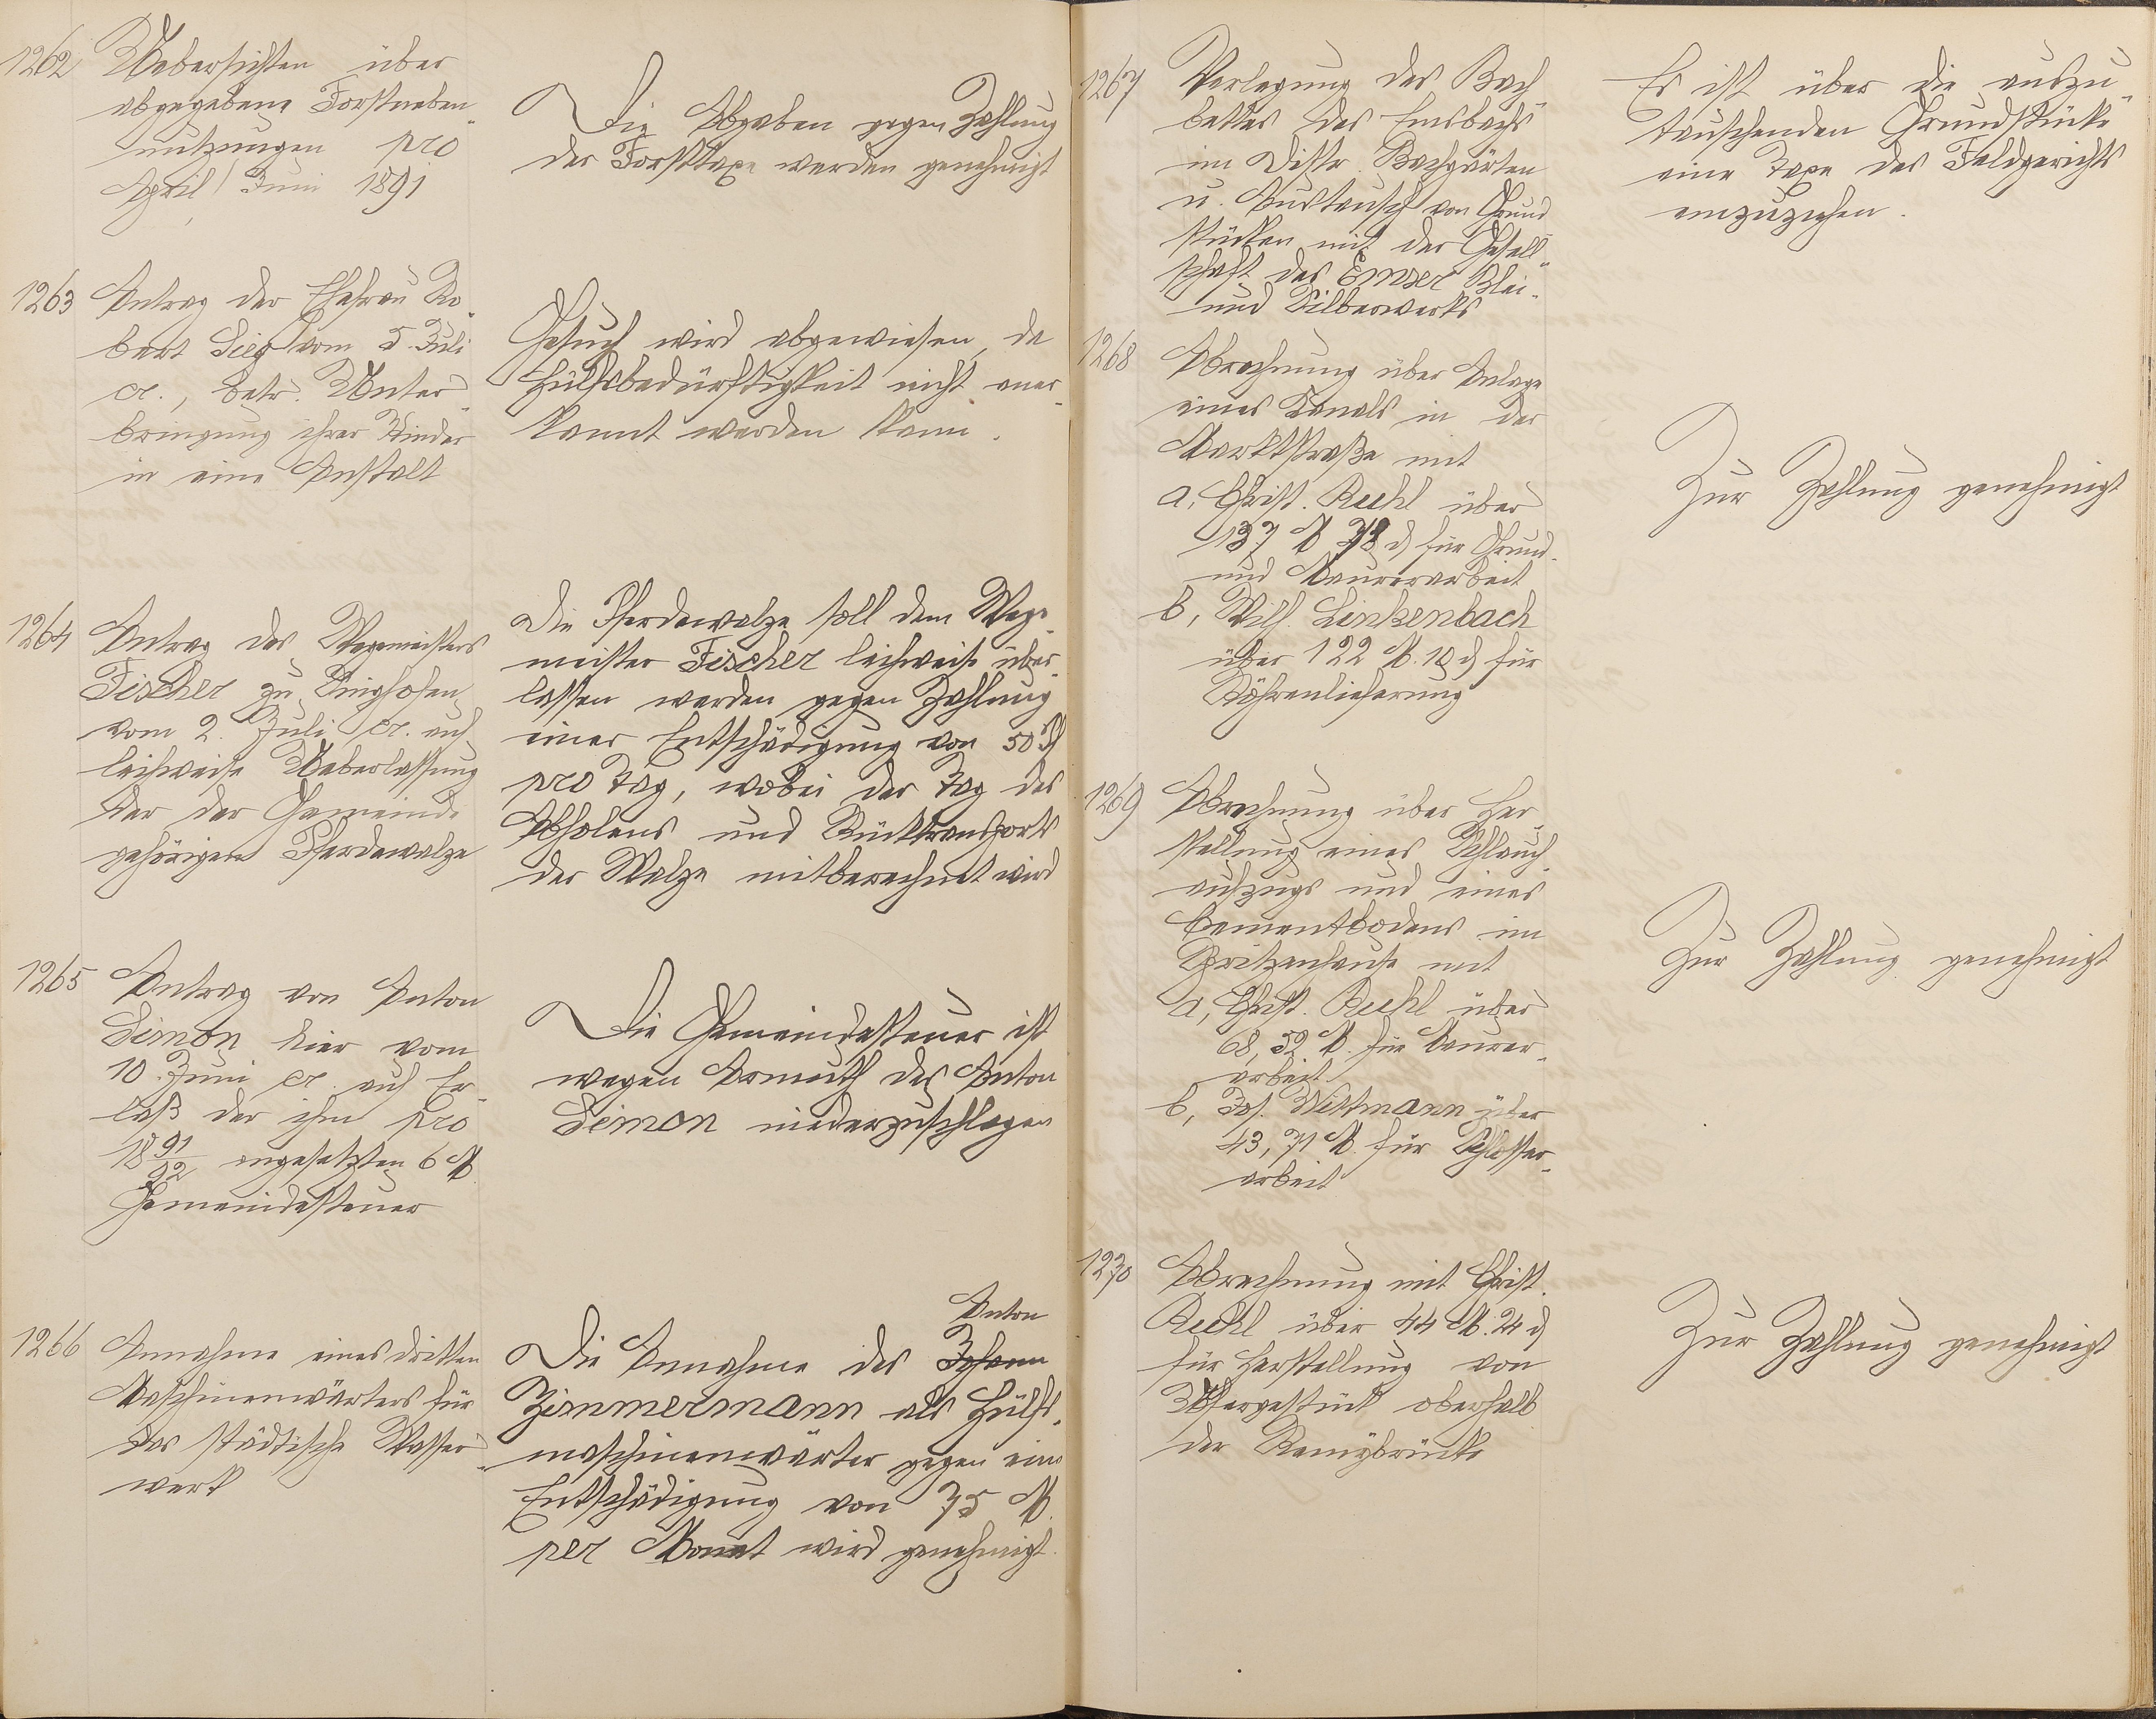 1262
Uebersichten über
abgegebene Forstneben-
nutzungen pro
April/Juni 1891
Die Abgaben gegen Zahlung
der Forsttaxe werden genehmigt
1263
Antrag der Ehefrau Ro-
bert Sieg vom 5. Juli
cr., betr. Unter-
bringung ihrer Kinder
in eine Anstalt
Gesuch wird abgewiesen, da
Hülfsbedürftigkeit nicht aner-
kannt werden kann.
1264
Antrag des Wegemeisters
Fischer zu Singhofen
vom 2. Juli cr. auf
leihweise Ueberlassung
der der Gemeinde
gehörigen Pferdewalze
Die Pferdewalze soll dem Wege-
meister Fischer leihweise über-
lassen werden gegen Zahlung
einer Entschädigung von 50 ₰
pro Tag, wobei der Tag des
Abholens und Rücktransports
der Walze mitberechnet wird
1265
Antrag von Anton
Simon hier vom
10. Juni cr. auf Er-
laß der ihm pro
1891/92 angesetzten 6 M
Gemeindesteuer
Die Gemeindesteuer ist
wegen Armuth des Anton
Simon niederzuschlagen
1266
Annahme eines dritten
Maschinenwärters für
das städtische Wasser-
werk
Anton
Die Annahme des Johann
Zimmermann als Hülfs-
maschinenwärter gegen eine
Entschädigung von 75 M.
per Monat wird genehmigt.
1267
Verlegung des Bach-
bettes des Emsbachs
im Distr. Bachgärten
u. Austausch von Grund-
stücken mit der Gesell-
schaft des Emser Blei-
und Silberwerks
Es ist über die auszu-
tauschenden Grundstücke
eine Taxe des Feldgerichts
einzuziehen.
1268
Abrechnung über Anlage
eines Kanals in der
Marktstraße mit
a, Christ. Reehl über
137 M 78 ₰ für Grund-
und Maurerarbeit
b, Wilh. Linkenbach
über 122 M. 10 ₰ für
Röhrenlieferung
Zur Zahlung genehmigt
1269
Abrechnung über Her-
stellung eines Schlauch-
aufzugs und eines
Cementbodens im
Spritzenhause mit
a, Christ. Reehl über
68,52 M. für Maurer-
arbeit
b, Jos. Wittmann über
43,71 M. für Schlosser-
arbeit
Zur Zahlung genehmigt
1270
Abrechnung mit Christ.
Reehl über 44 M. 24 ₰
für Herstellung von
Ufergestück oberhalb
der Remybrücke
Zur Zahlung genehmigt